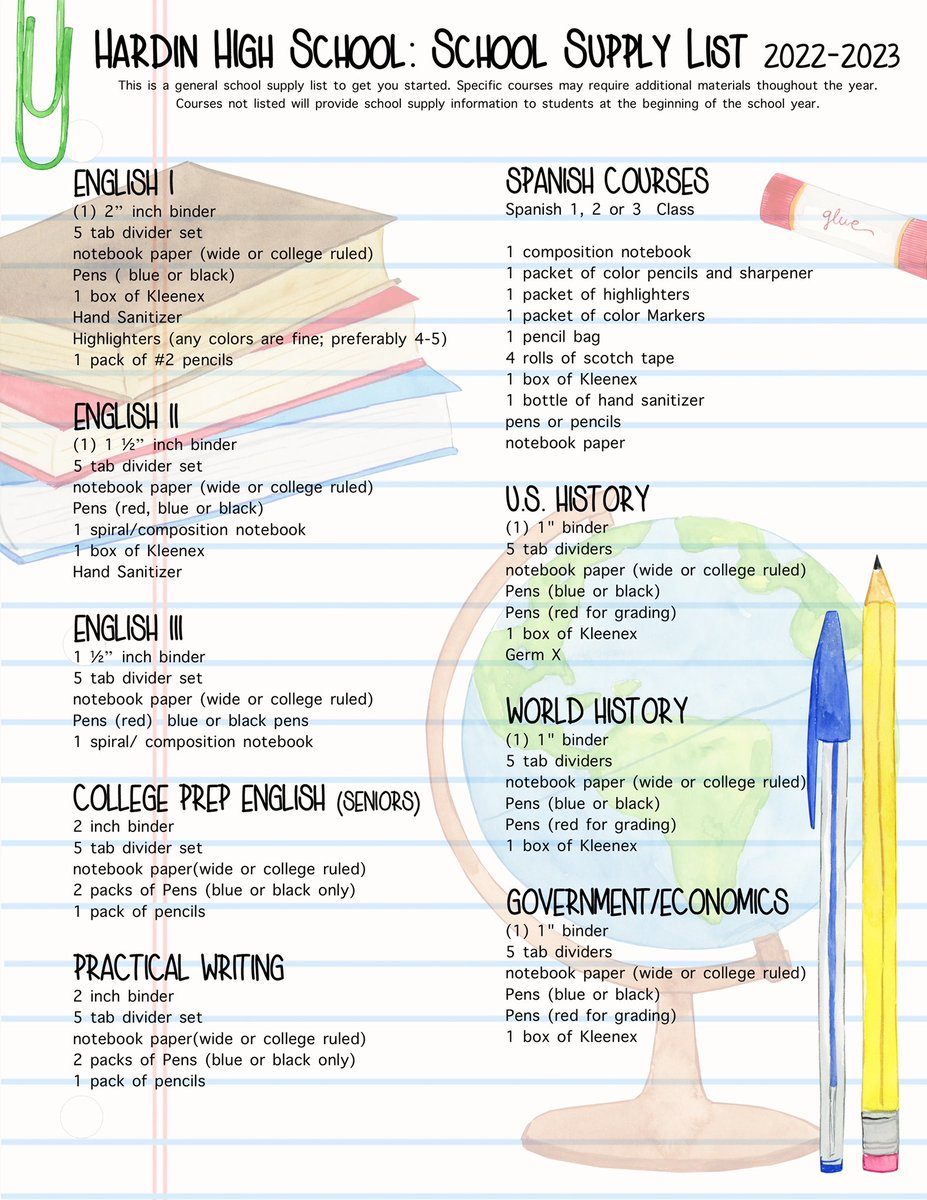 HARDIN HIGH SCHOOL: SCHOOL SUPPLY LIST 2022-2023
This is a general school supply list to get you started. Specific courses may require additional materials thoughout the year.
Courses not listed will provide school supply information to students at the beginning of the school year.
ENGLISH I
(1) 2” inch binder
5 tab divider set
notebook paper (wide or college ruled)
Pens ( blue or black)
1 box of Kleenex
Hand Sanitizer
Highlighters (any colors are fine; preferably 4-5)
1 pack of #2 pencils
ENGLISH II
(1) 1 ½” inch binder
5 tab divider set
notebook paper (wide or college ruled)
Pens (red, blue or black)
1 spiral/composition notebook
1 box of Kleenex
Hand Sanitizer
ENGLISH III
1 ½” inch binder
5 tab divider set
notebook paper (wide or college ruled)
Pens (red)  blue or black pens
1 spiral/ composition notebook
COLLEGE PREP ENGLISH (SENIORS)
2 inch binder
5 tab divider set
notebook paper(wide or college ruled)
2 packs of Pens (blue or black only)
1 pack of pencils
PRACTICAL WRITING
2 inch binder
5 tab divider set
notebook paper(wide or college ruled)
2 packs of Pens (blue or black only)
1 pack of pencils
SPANISH COURSES
Spanish 1, 2 or 3  Class
1 composition notebook
1 packet of color pencils and sharpener
1 packet of highlighters
1 packet of color Markers
1 pencil bag
4 rolls of scotch tape
1 box of Kleenex
1 bottle of hand sanitizer
pens or pencils
notebook paper
glue
U.S. HISTORY
(1) 1" binder
5 tab dividers
notebook paper (wide or college ruled)
Pens (blue or black)
Pens (red for grading)
1 box of Kleenex
Germ X
WORLD HISTORY
(1) 1" binder
5 tab dividers
notebook paper (wide or college ruled)
Pens (blue or black)
Pens (red for grading)
1 box of Kleenex
GOVERNMENT/ECONOMICS
(1) 1" binder
5 tab dividers
notebook paper (wide or college ruled)
Pens (blue or black)
Pens (red for grading)
1 box of Kleenex